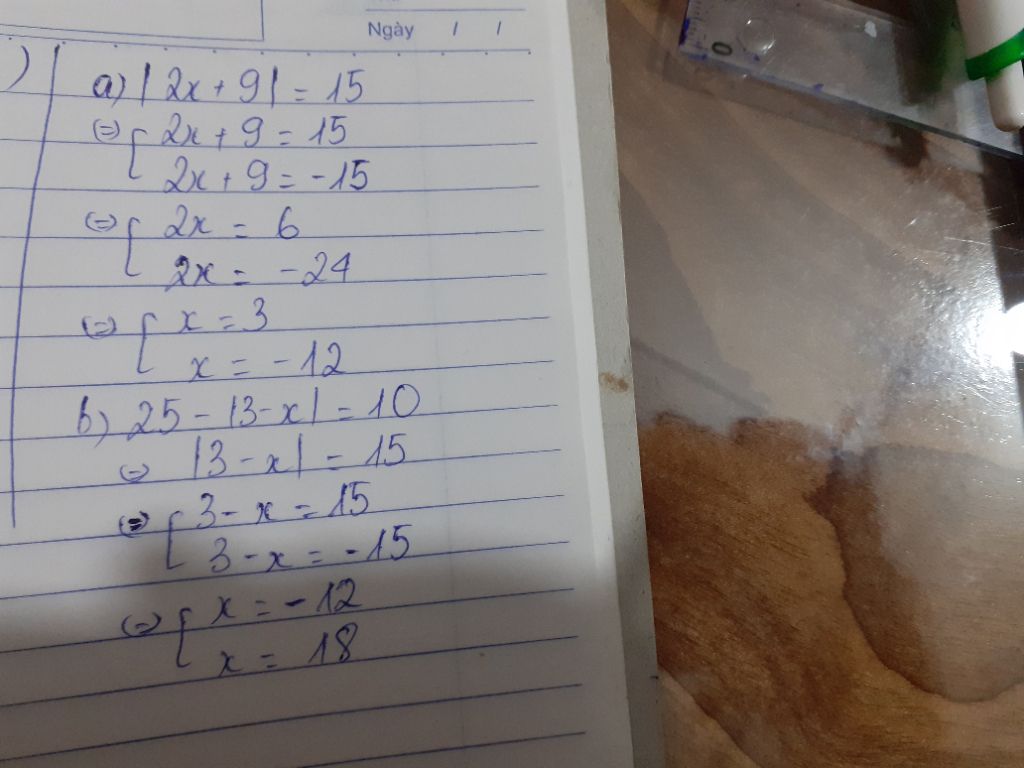 Ngày / /
) a) |2x + 9| = 15
(=) [ 2x + 9 = 15
2x + 9 = -15
(=) [ 2x = 6
2x = -24
(=) [ x = 3
x = -12
b) 25 - |3 - x| = 10
(=) |3 - x| = 15
(=) [ 3 - x = 15
3 - x = -15
(=) [ x = -12
x = 18
0